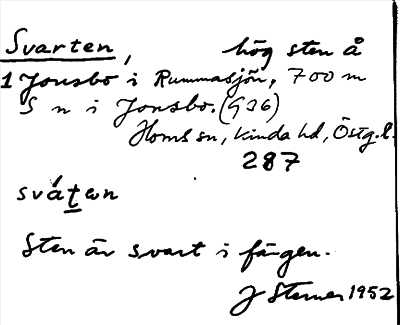 Svarten, hög sten å
1 Jonsbo i Rummasjön, 700 m
S n i Jonsbo. (936)
Horns sn, Kinda hd, Östg. l.
287
sváten
Sten är svart i färgen.
J Sterner 1952